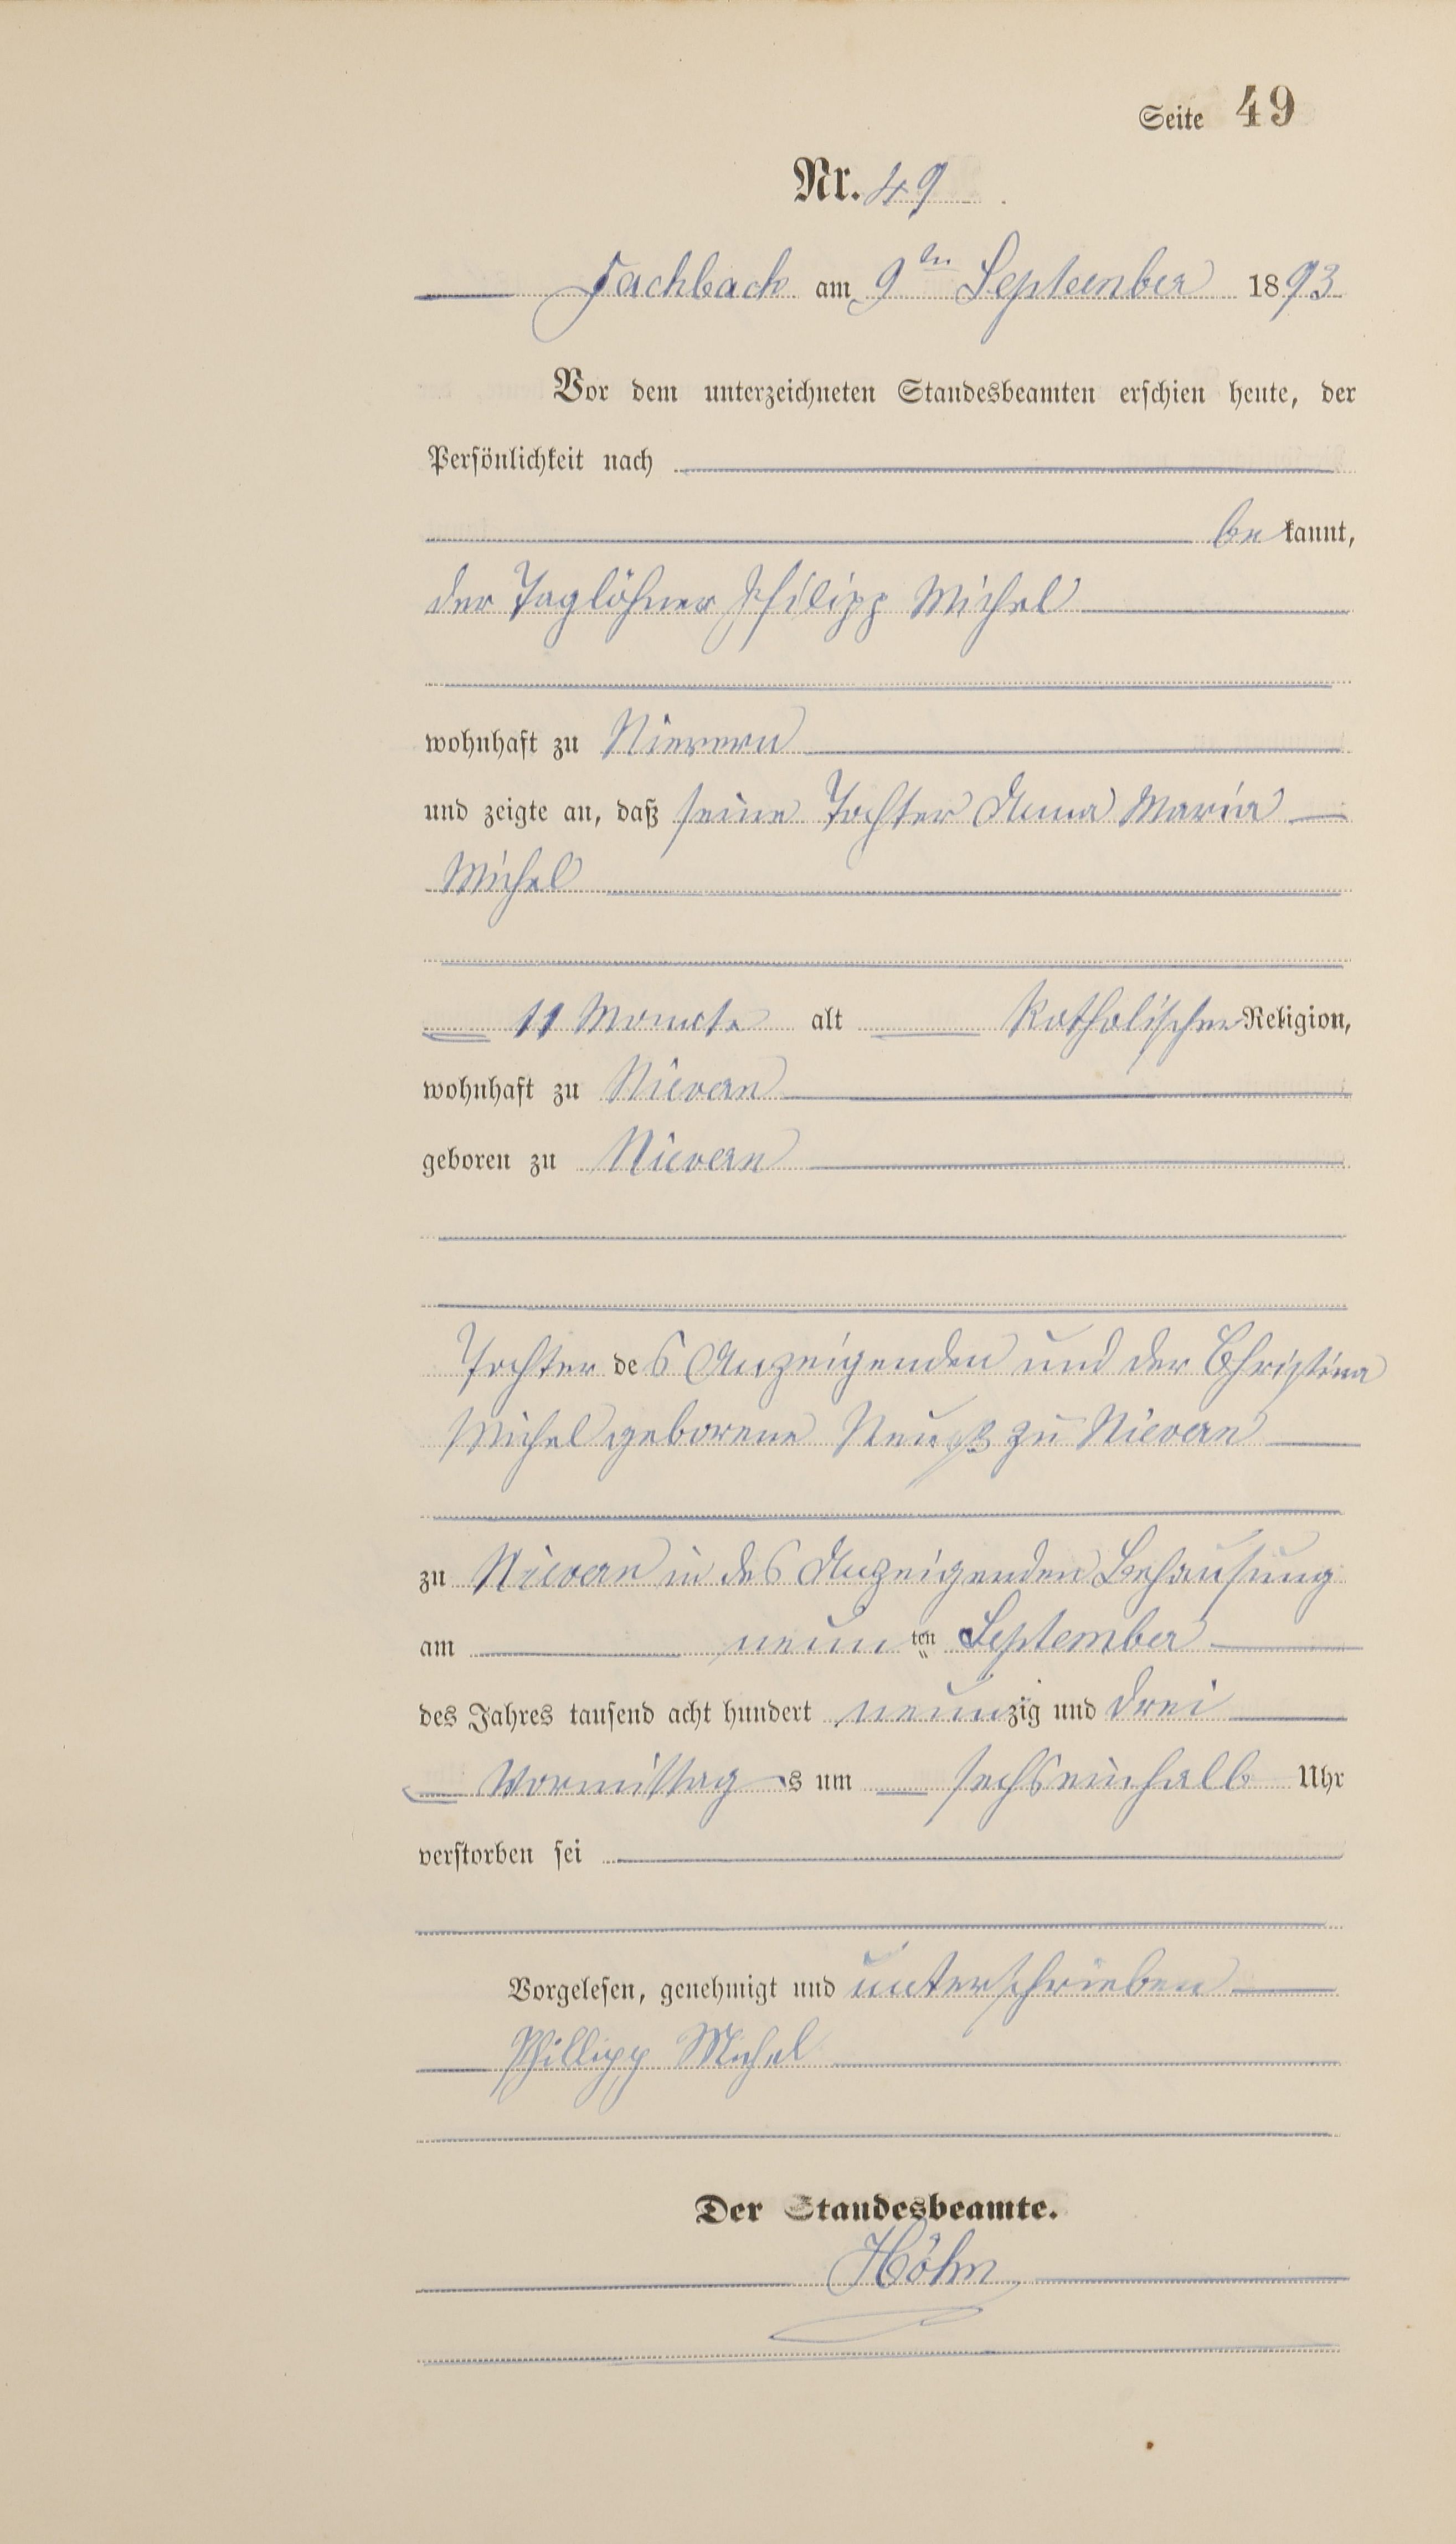 Seite 49
Nr. 49
Fachbach am 9ten September 1893
Vor dem unterzeichneten Standesbeamten erschien heute, der
Persönlichkeit nach
bekannt,
der Taglöhner Philipp Michel
wohnhaft zu Nievern
und zeigte an, daß seine Tochter Anna Maria
Michel
11 Monate alt katholischer Religion,
wohnhaft zu Nievern
geboren zu Nievern
Tochter des Anzeigenden und der Christina
Michel geborene zu Nievern
zu Nievern in des Anzeigenden Behausung
am neunten September
des Jahres tausend acht hundert neunzig und drei
Vormittags um sechseinhalb Uhr
verstorben sei
Vorgelesen, genehmigt und unterschrieben
Phillipp Michel
Der Standesbeamte.
Höhn